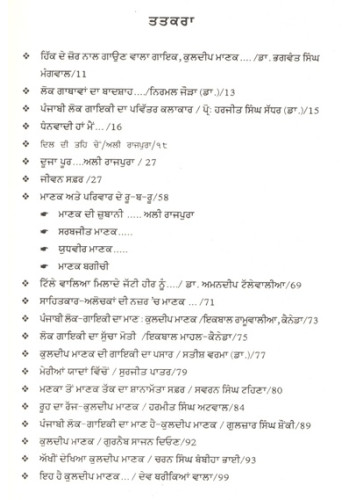 ਤਤਕਰਾ
❖ ਹਿੱਕ ਦੇ ਜ਼ੋਰ ਨਾਲ ਗਾਉਣ ਵਾਲਾ ਗਾਇਕ, ਕੁਲਦੀਪ ਮਾਣਕ.... /ਡਾ. ਭਗਵੰਤ ਸਿੰਘ
ਮੰਗਵਾਲ/11
❖ ਲੋਕ ਗਾਥਾਵਾਂ ਦਾ ਬਾਦਸ਼ਾਹ..../ਨਿਰਮਲ ਜੌੜਾ (ਡਾ.)/13
❖ ਪੰਜਾਬੀ ਲੋਕ ਗਾਇਕੀ ਦਾ ਪਵਿੱਤਰ ਕਲਾਕਾਰ / ਪ੍ਰੋ: ਹਰਜੀਤ ਸਿੰਘ ਸੱਧਰ (ਡਾ.)/15
❖ ਧੰਨਵਾਦੀ ਹਾਂ ਮੈਂ... /16
❖ ਦਿਲ ਦੀ ਤਹਿ ਚੋਂ/ਅਲੀ ਰਾਜਪੁਰਾ/੧੮
❖ ਦੂਜਾ ਪੂਰ....ਅਲੀ ਰਾਜਪੁਰਾ / 27
❖ ਜੀਵਨ ਸਫ਼ਰ /27
❖ ਮਾਣਕ ਅਤੇ ਪਰਿਵਾਰ ਦੇ ਰੂ-ਬ-ਰੂ/58
☛ ਮਾਣਕ ਦੀ ਜ਼ੁਬਾਨੀ ..... ਅਲੀ ਰਾਜਪੁਰਾ
☛ ਸਰਬਜੀਤ ਮਾਣਕ.....
☛ ਯੁਧਵੀਰ ਮਾਣਕ.....
☛ ਮਾਣਕ ਬਗੀਚੀ
❖ ਟਿੱਲੇ ਵਾਲਿਆ ਮਿਲਾਦੇ ਜੱਟੀ ਹੀਰ ਨੂੰ..../ ਡਾ. ਅਮਨਦੀਪ ਟੱਲੇਵਾਲੀਆ/69
❖ ਸਾਹਿਤਕਾਰ-ਅਲੋਚਕਾਂ ਦੀ ਨਜ਼ਰ 'ਚ ਮਾਣਕ ... /71
❖ ਪੰਜਾਬੀ ਲੋਕ-ਗਾਇਕੀ ਦਾ ਮਾਣ : ਕੁਲਦੀਪ ਮਾਣਕ /ਇਕਬਾਲ ਰਾਮੂਵਾਲੀਆ, ਕੈਨੇਡਾ/73
❖ ਲੋਕ ਗਾਇਕੀ ਦਾ ਸੁੱਚਾ ਮੋਤੀ /ਇਕਬਾਲ ਮਾਹਲ-ਕੈਨੇਡਾ/75
❖ ਕੁਲਦੀਪ ਮਾਣਕ ਦੀ ਗਾਇਕੀ ਦਾ ਪਸਾਰ / ਸਤੀਸ਼ ਵਰਮਾ (ਡਾ.)/77
❖ ਮੇਰੀਆਂ ਯਾਦਾਂ ਵਿੱਚੋਂ / ਸੁਰਜੀਤ ਪਾਤਰ/79
❖ ਮਣਕਾ ਤੋਂ ਮਾਣਕ ਤੱਕ ਦਾ ਸ਼ਾਨਾਮੱਤਾ ਸਫ਼ਰ / ਸਵਰਨ ਸਿੰਘ ਟਹਿਣਾ/80
❖ ਰੂਹ ਦਾ ਰੱਜ-ਕੁਲਦੀਪ ਮਾਣਕ / ਹਰਮੀਤ ਸਿੰਘ ਅਟਵਾਲ/84
❖ ਪੰਜਾਬੀ ਲੋਕ-ਗਾਇਕੀ ਦਾ ਮਾਣ ਹੈ-ਕੁਲਦੀਪ ਮਾਣਕ / ਗੁਲਜ਼ਾਰ ਸਿੰਘ ਸ਼ੌਂਕੀ/89
❖ ਕੁਲਦੀਪ ਮਾਣਕ / ਗੁਰਨੈਬ ਸਾਜਨ ਦਿਓਣ/92
❖ ਅੱਖੀਂ ਦੇਖਿਆ ਕੁਲਦੀਪ ਮਾਣਕ / ਚਰਨ ਸਿੰਘ ਬੰਬੀਹਾ ਭਾਈ/93
❖ ਇਹ ਹੈ ਕੁਲਦੀਪ ਮਾਣਕ... / ਦੇਵ ਥਰੀਕਿਆਂ ਵਾਲਾ/99